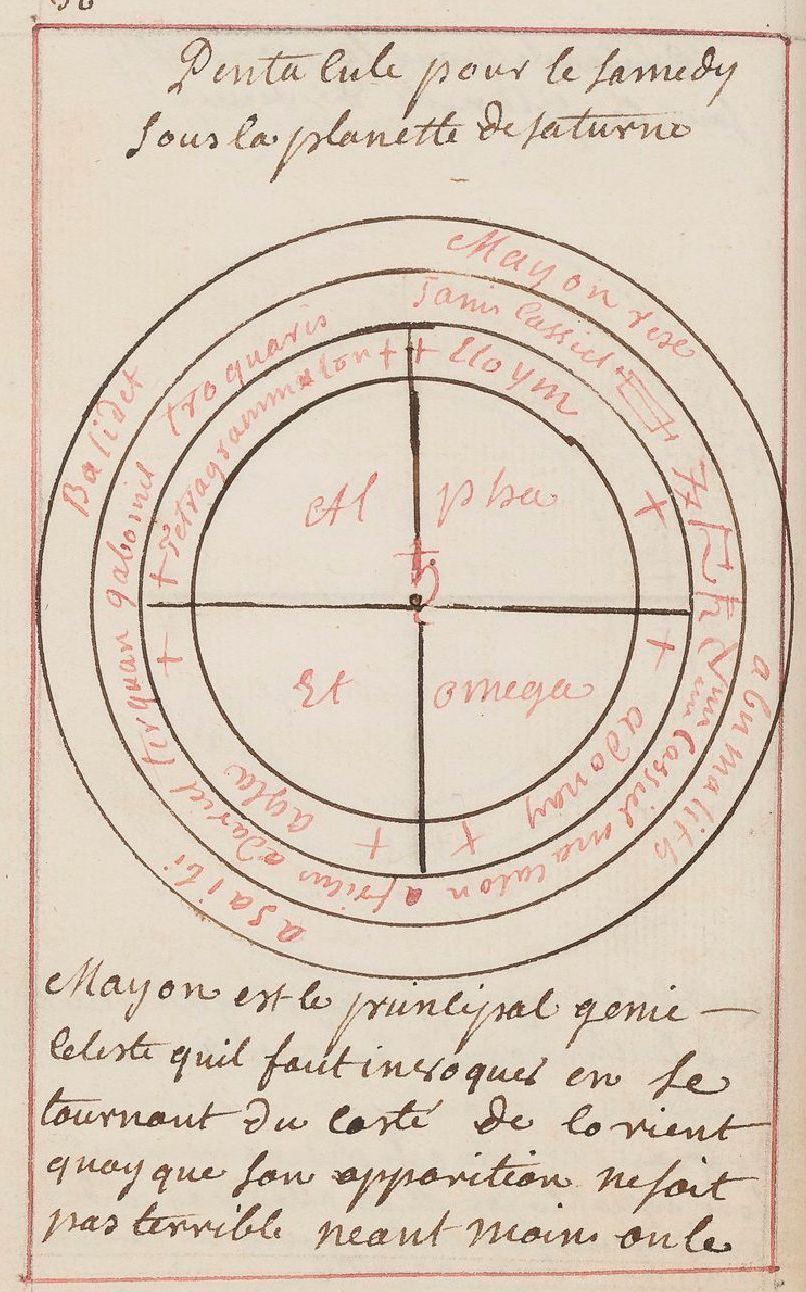 Pentacule pour le samedy
sous la planette de saturne
Mayon rex
Balidet
abumalith
asaibi
cassiel
cassiel macaton
adariel
troquaris
+ Eloym
+
+
adonay
+
+
agla
+
+ Tetragrammaton +
Al
pha
♄
Et
omega
Mayon est le principal genie —
celeste quil faut invoquer en se
tournant du costé de lorient
quoy que son apparition ne soit
pas terrible neant moins on le